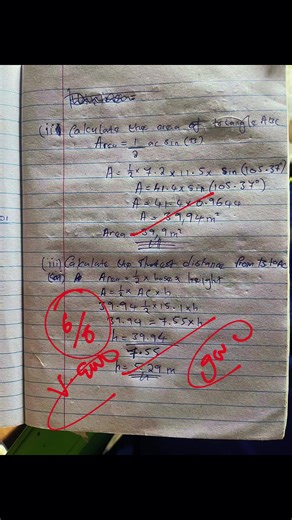 (ii) Calculate the area of triangle ABC
Area = 1/2 ac sin(θ)
A = 1/2 × 7.2 × 11.5 × sin(105.37)
A = 41.4 × sin(105.37°)
A = 41.4 × 0.9644
A = 39,94 m²
Area = 39,9 m²
(iii) Calculate the shortest distance from B to AC
Area = 1/2 × base × height
A = 1/2 × AC × h
39.94 1/2 × 15.1 × h
39.94 = 7.55 × h
h = 39.94
7.55
h = 5.29 m
6/6